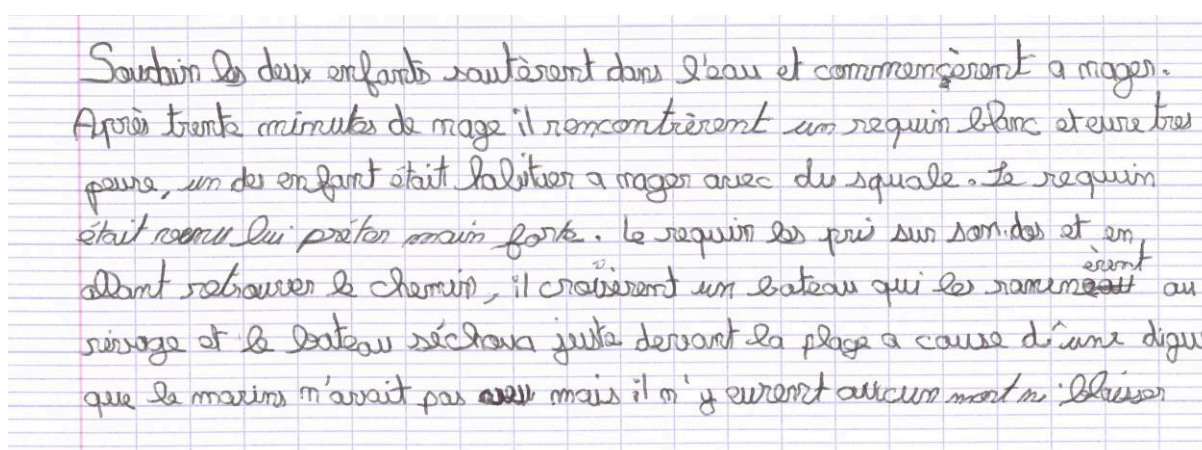 Soudain les deux enfants sautèrent dans l'eau et commencèrent a nager.
Après trente minutes de nage il rencontrèrent un requin blanc et eure tres
peure, un des enfant était habituer a nager avec du squale. Le requin
était venu lui prêter main forte. Le requin les pri sur son dos et en
allant retrouver le chemin, il croisèrent un bateau qui les ramenèrent au
rivage et le bateau séchoua juste devant la plage a cause d'une digue
que le marins n'avait pas mais il n'y eurent aucun mort ni blaisser